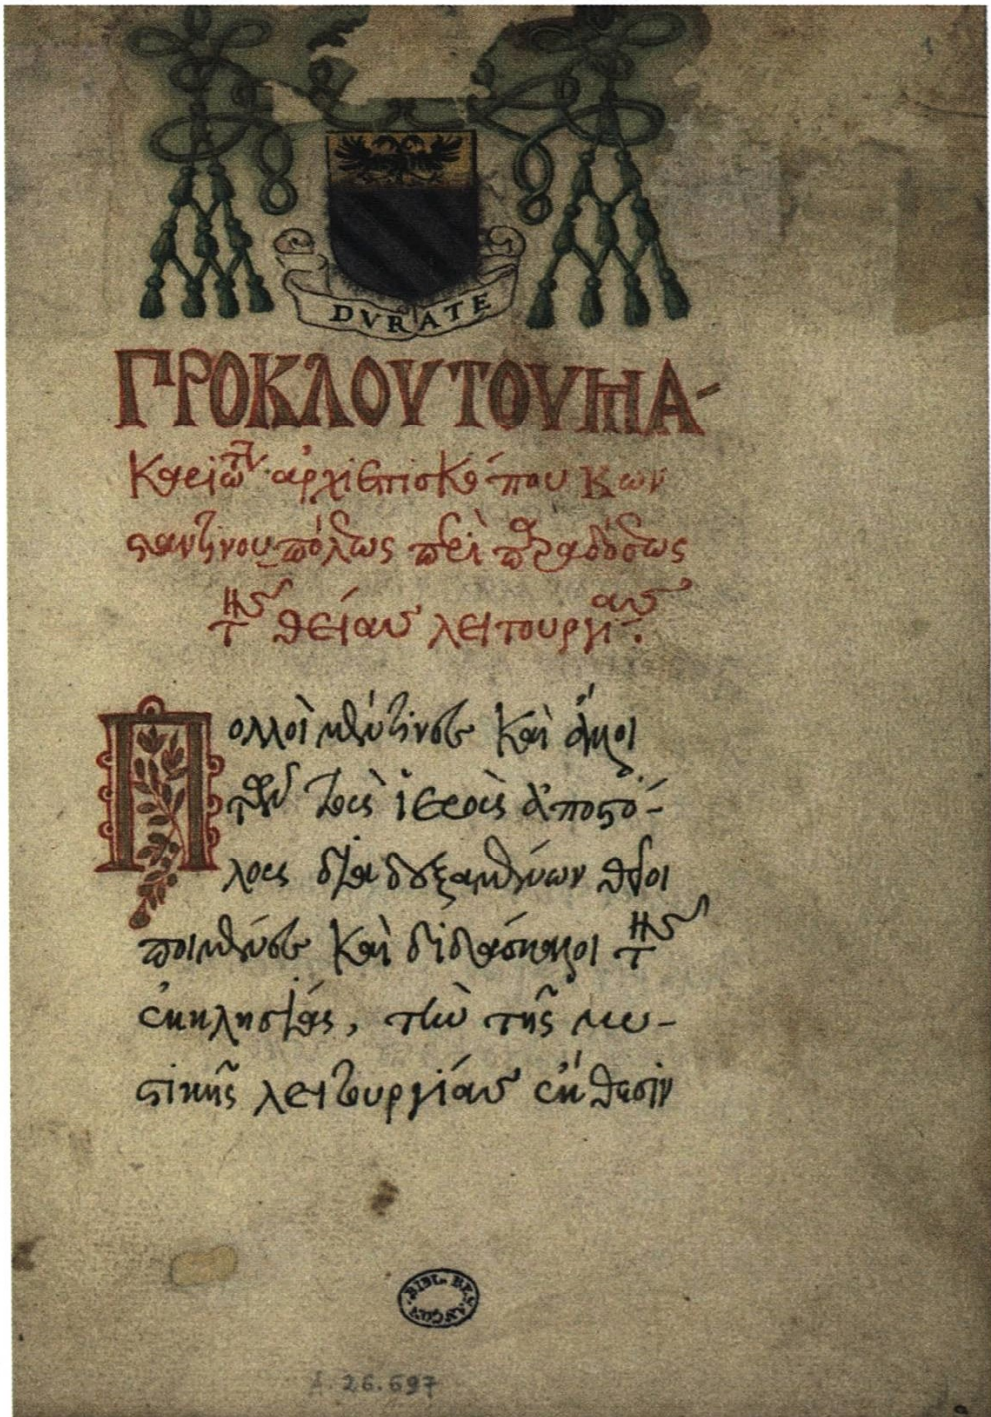 DVRATE
ΠΡΟΚΛΟΥ ΤΟΥ ΜΑ-
καριωτ(ά)τ(ου) ἀρχιεπισκόπου Κων
σταντίνου πόλεως περὶ παραδόσεως
τῆς θείας λειτουργίας:
Πολλοὶ μέν τινες καὶ ἄλλοι
τῶν τοὺς ἱεροὺς ἀποστό-
λους διαδεξαμένων θεῖοι
ποιμένες καὶ διδάσκαλοι τῆς
ἐκκλησίας, τὴν τῆς μυ-
στικῆς λειτουργίας ἔκθεσιν
BIBL. BESANÇON
A. 26.697